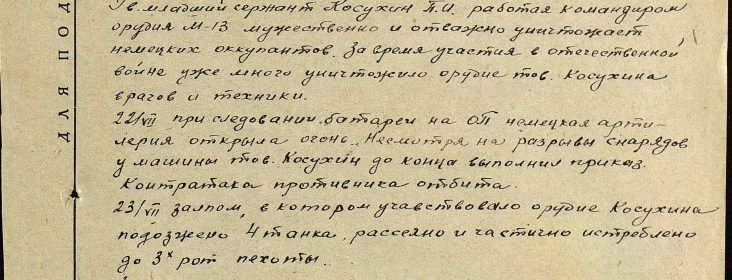 Гв. младший сержант Косухин П.И. работая командиром
орудия М-13 мужественно и отважно уничтожает
немецких оккупантов. За время участия в отечественной
войне уже много уничтожило орудие тов. Косухина
врагов и техники.
22/VII при следовании батареи на ОП немецкая арти-
лерия открыла огонь. Несмотря на разрывы снарядов
у машины тов. Косухин до конца выполнил приказ.
Контратака противника отбита.
23/VII залпом, в котором учавствовало орудие Косухина
подозжено 4 танка, рассеяно и частично истреблено
до 3х рот пехоты.
ДЛЯ ПОД